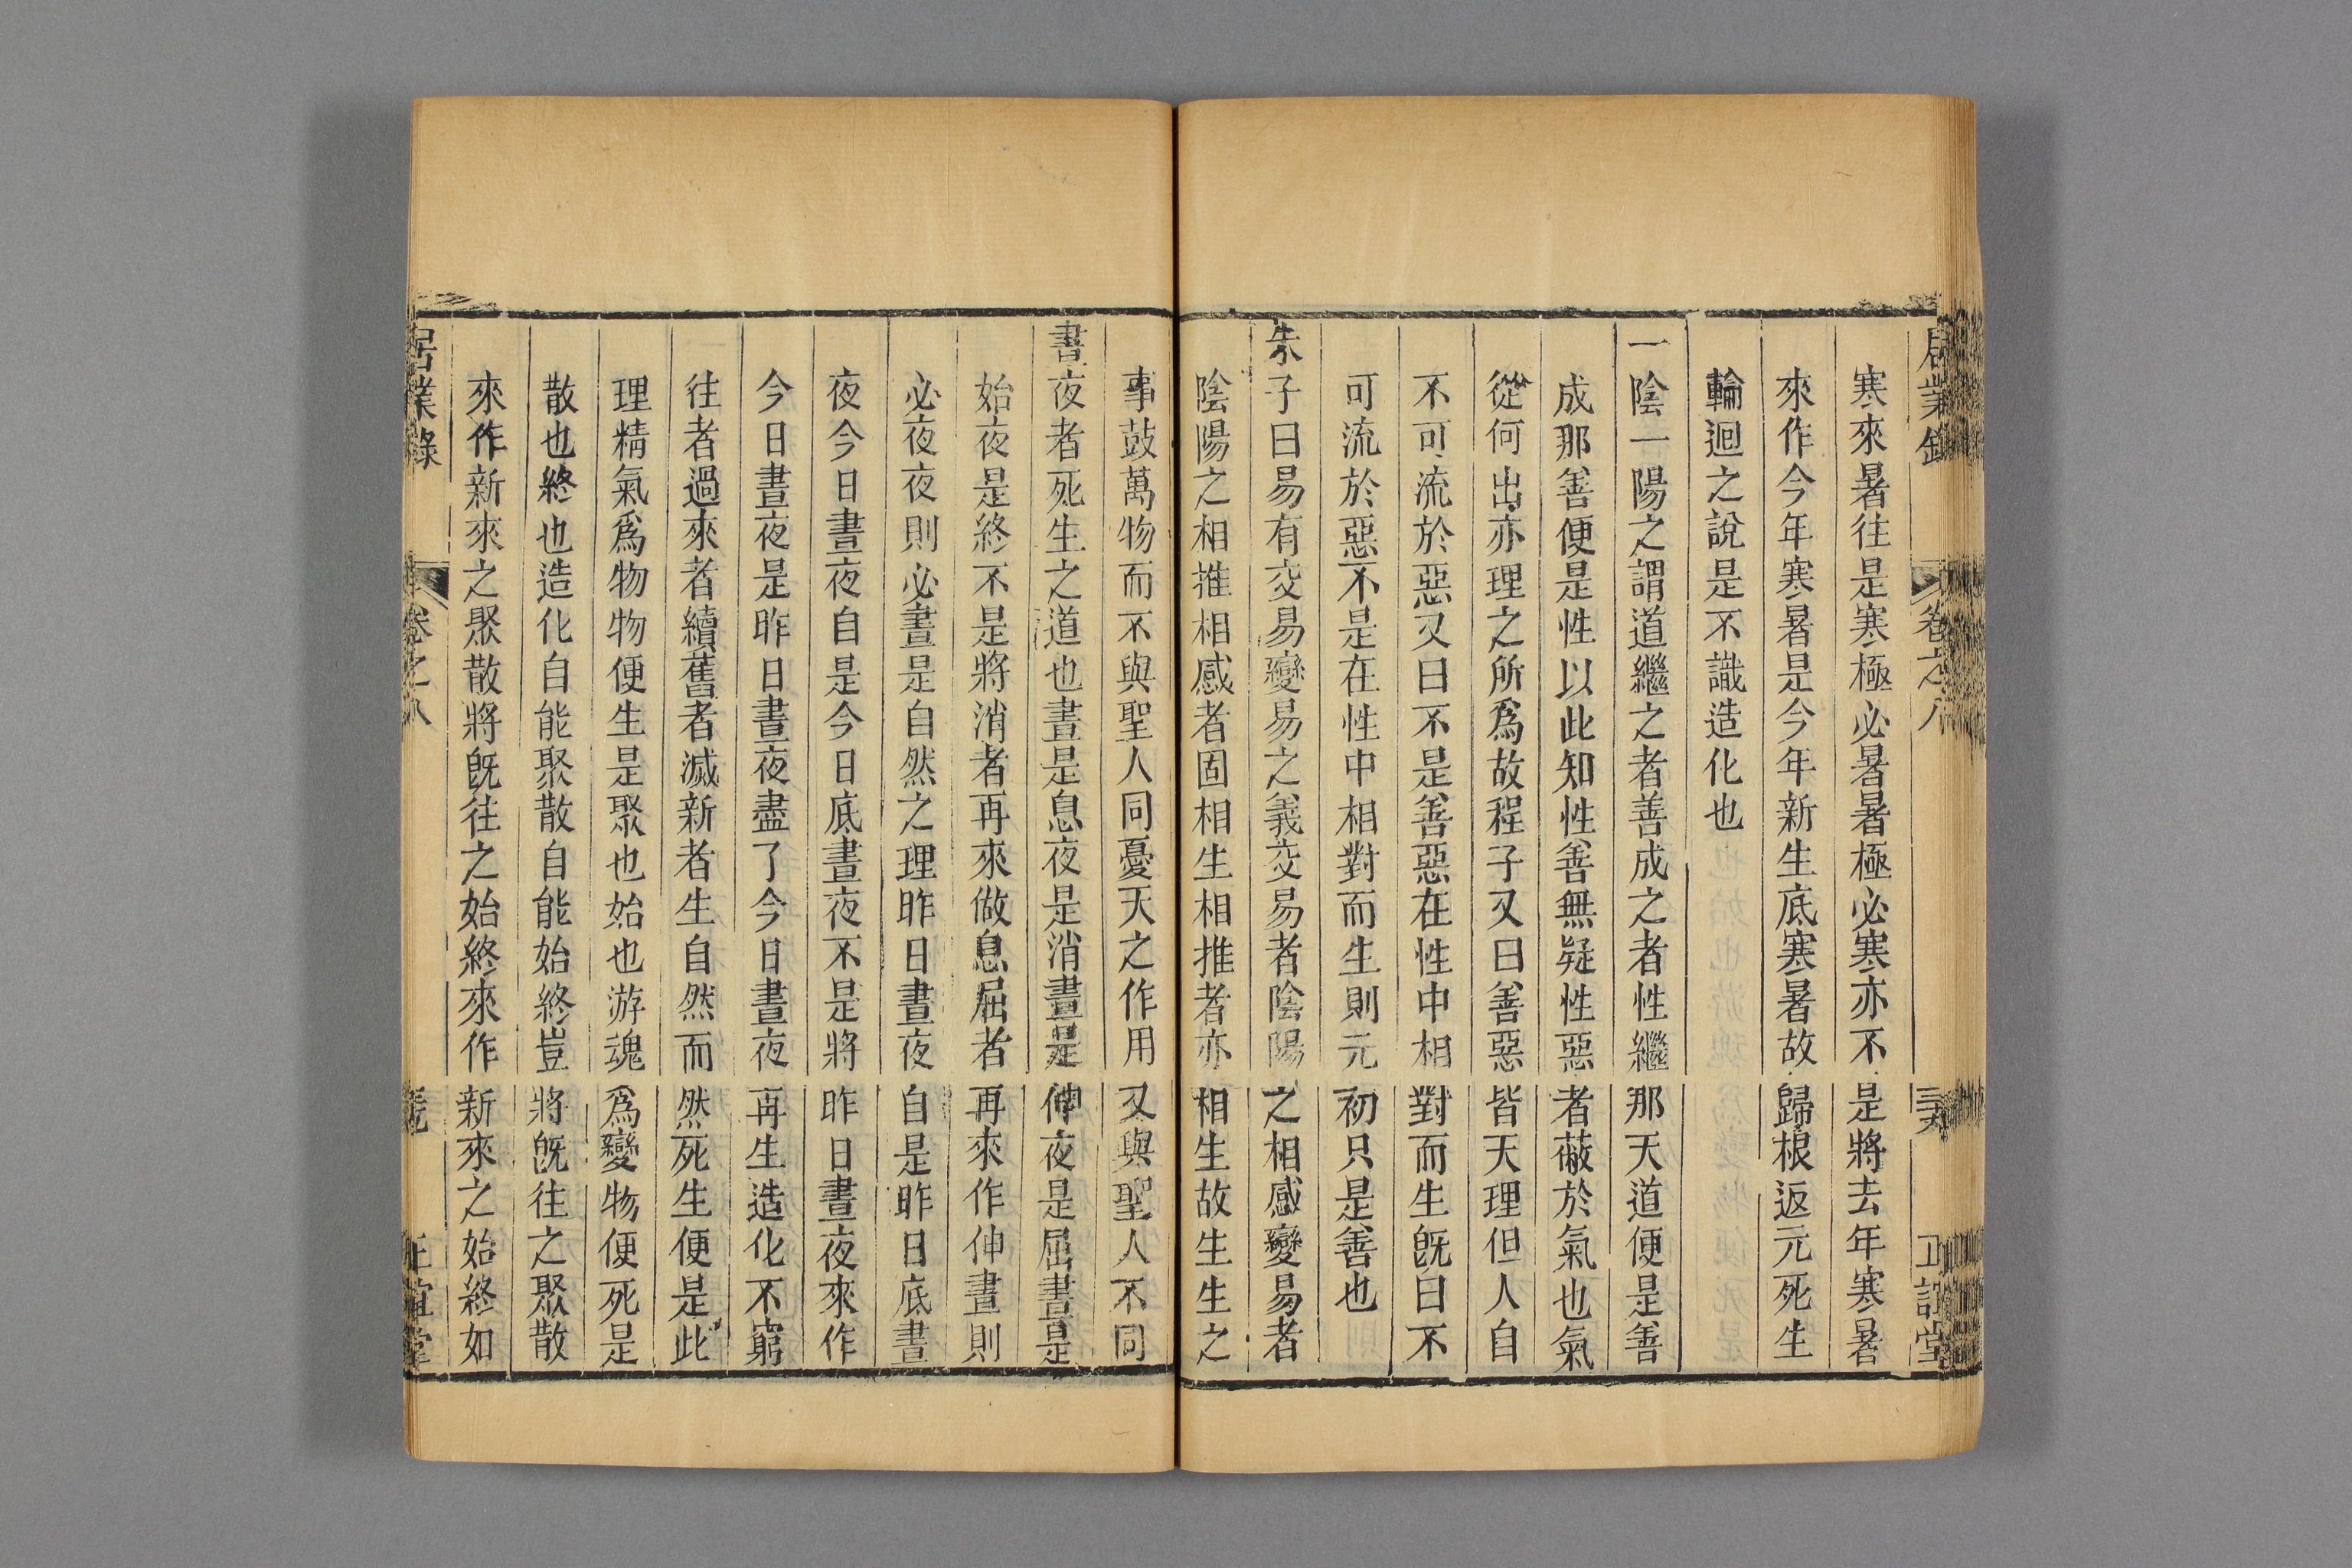 居業錄 卷之八 正誼堂
寒來暑往是寒極必暑暑極必寒亦不是將去年寒暑
來作今年寒暑是今年新生底寒暑故歸根返元死生
輪迴之說是不識造化也
一陰一陽之謂道繼之者善成之者性繼那天道便是善
成那善便是性以此知性善無疑性惡者蔽於氣也氣
從何出亦理之所爲故程子又曰善惡皆天理但人自
不可流於惡又曰不是善惡在性中相對而生旣曰不
可流於惡不是在性中相對而生則元初只是善也
朱子曰易有交易變易之義交易者陰陽之相感變易者
陰陽之相推相感者固相生相推者亦相生故生生之
事鼓萬物而不與聖人同憂天之作用又與聖人不同
晝夜者死生之道也晝是息夜是消晝是伸夜是屈晝是
始夜是終不是將消者再來做息屈者再來作伸晝則
必夜夜則必晝是自然之理昨日晝夜自是昨日底晝
夜今日晝夜自是今日底晝夜不是將昨日晝夜來作
今日晝夜是昨日晝夜盡了今日晝夜再生造化不窮
往者過來者續舊者滅新者生自然而然死生便是此
理精氣爲物物便生是聚也始也游魂爲變物便死是
散也終也造化自能聚散自能始終豈將旣往之聚散
來作新來之聚散將旣往之始終來作新來之始終如
居業錄 卷之八 正誼堂